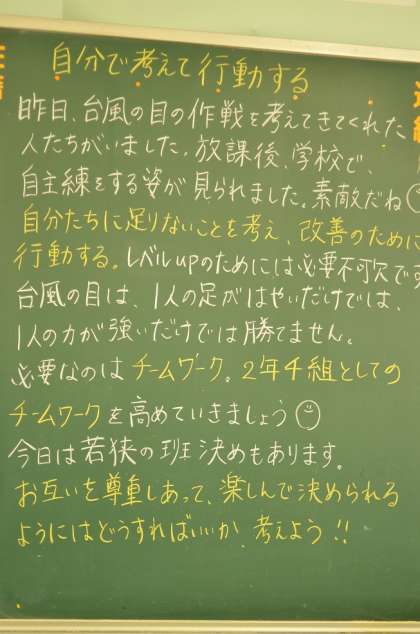 自分で考えて行動する
昨日、台風の目の作戦を考えてきてくれた
人たちがいました。放課後、学校で、
自主練をする姿が見られました。素敵だね
自分たちに足りないことを考え、改善のために
行動する。レベルupのためには必要不可欠です
台風の目は、1人の足がはやいだけでは、
1人の力が強いだけでは勝てません。
必要なのはチームワーク。2年4組としての
チームワークを高めていきましょう
今日は若狭の班決めもあります。
お互いを尊重しあって、楽しんで決められる
ようにはどうすればいいか 考えよう!!